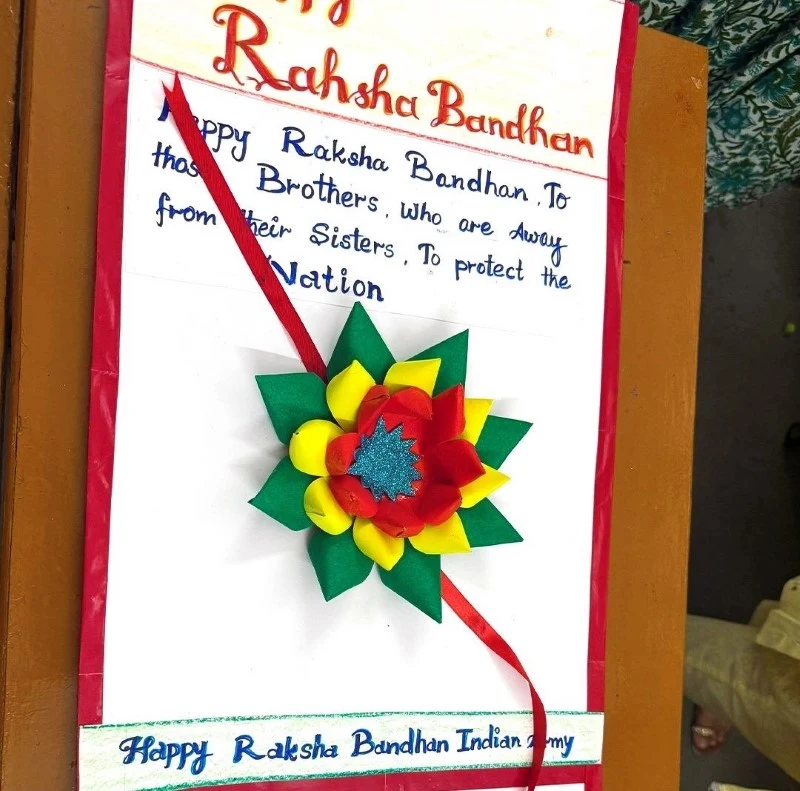 ppy
Rahsha Bandhan
Happy Raksha Bandhan, To
those Brothers, Who are Away
from their Sisters, To protect the
Nation
Happy Raksha Bandhan Indian Army